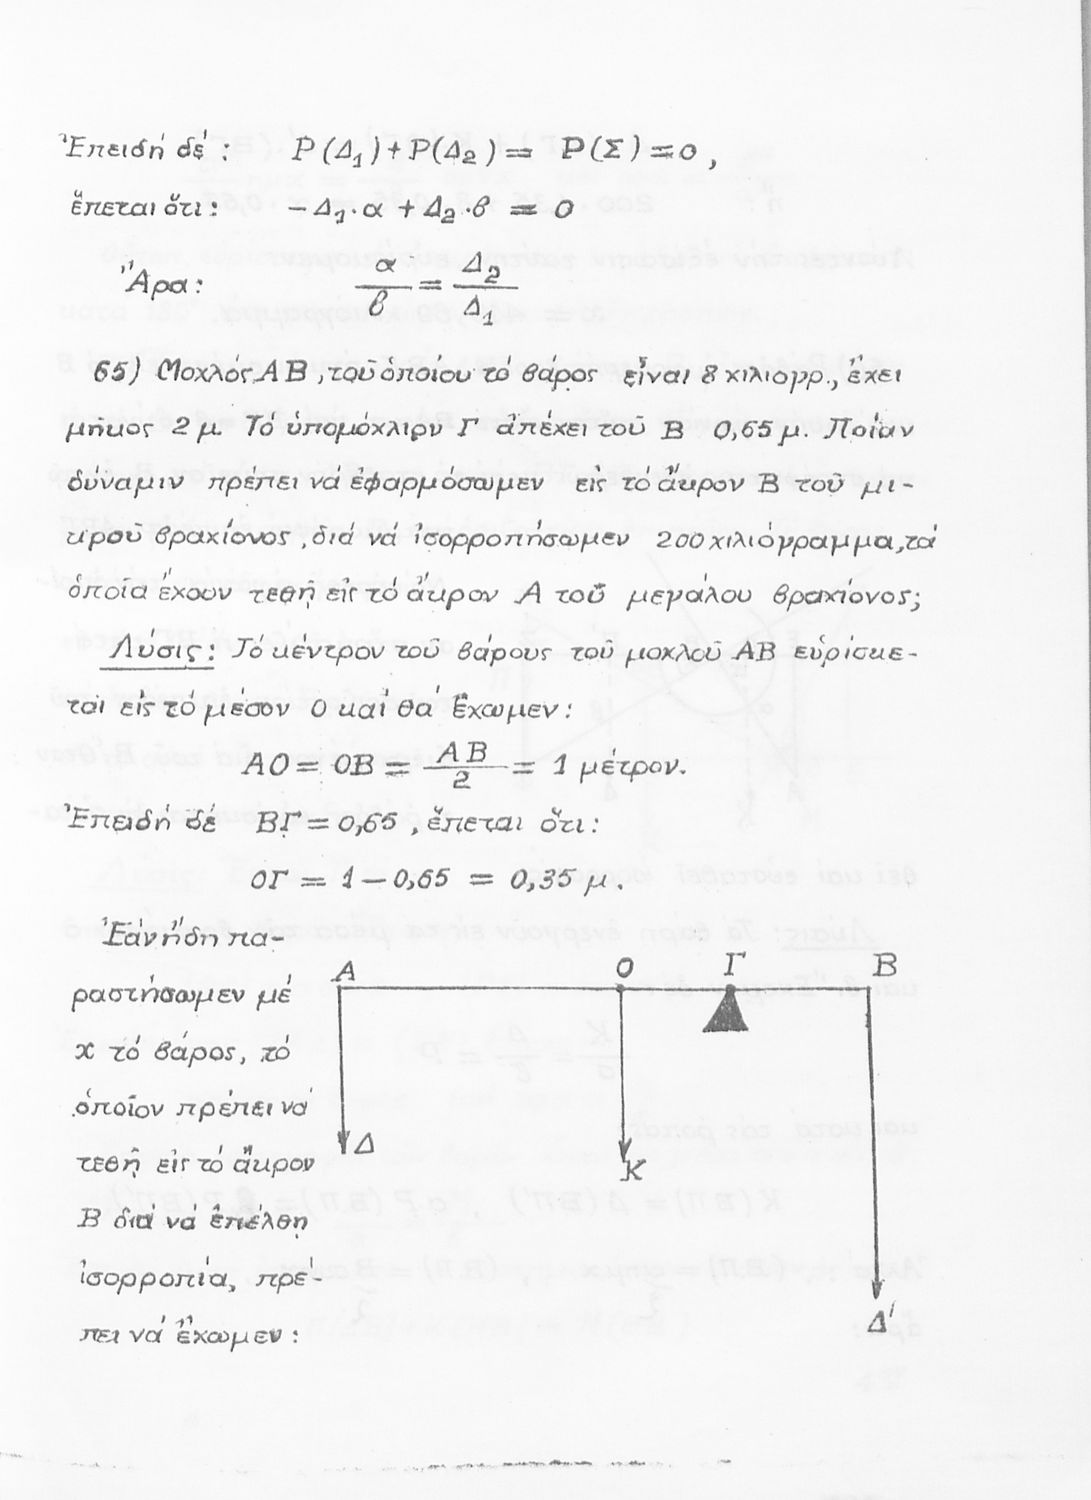 Ἐπειδή δέ: P(Δ₁)+P(Δ₂)= P(Σ)=0,
ἕπεται ὅτι: -Δ₁·α + Δ₂·β = 0
Ἄρα: α/β = Δ₂/Δ₁
65) Μοχλός ΑΒ, τοῦ ὁποίου τό βάρος εἶναι 8 χιλιόγρ., ἔχει
μῆκος 2 μ. Τό ὑπομόχλιον Γ ἀπέχει τοῦ Β 0,65 μ. Ποίαν
δύναμιν πρέπει νά ἐφαρμόσωμεν εἰς τό ἄκρον Β τοῦ μι-
κροῦ βραχίονος, διά νά ἰσορροπήσωμεν 200 χιλιόγραμμα, τά
ὁποία ἔχουν τεθῆ εἰς τό ἄκρον Α τοῦ μεγάλου βραχίονος;
Λύσις: Τό κέντρον τοῦ βάρους τοῦ μοχλοῦ ΑΒ εὑρίσκε-
ται εἰς τό μέσον Ο καί θά ἔχωμεν:
ΑΟ = ΟΒ = ΑΒ/2 = 1 μέτρον.
Ἐπειδή δέ ΒΓ = 0,65, ἕπεται ὅτι:
ΟΓ = 1 – 0,65 = 0,35 μ.
Ἐάν ἤδη πα-
ραστήσωμεν μέ
χ τό βάρος, τό
ὁποῖον πρέπει νά
τεθῆ εἰς τό ἄκρον
Β διά νά ἐπέλθη
ἰσορροπία, πρέ-
πει νά ἔχωμεν:
Α Ο Γ Β
Δ
Κ
Δ'